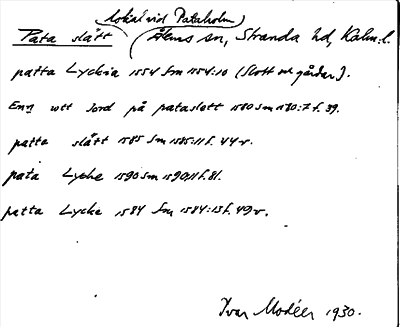 lokal vid Pataholm
Pata slått (Ålems sn, Stranda hd, Kalm. l.
patta Lyckia 1554 Sm 1554:10 (Slott och gårdar).
Enn ött Jord på pataslott 1580 Sm 1580:7 f. 39.
patta slått 1585 Sm 1585:11 f. 44 v.
pata Lycke 1590 Sm 1590:11 f. 81.
patta Lycke 1584 Sm 1584:13 f. 49 v.
Ivar Modéer 1930.